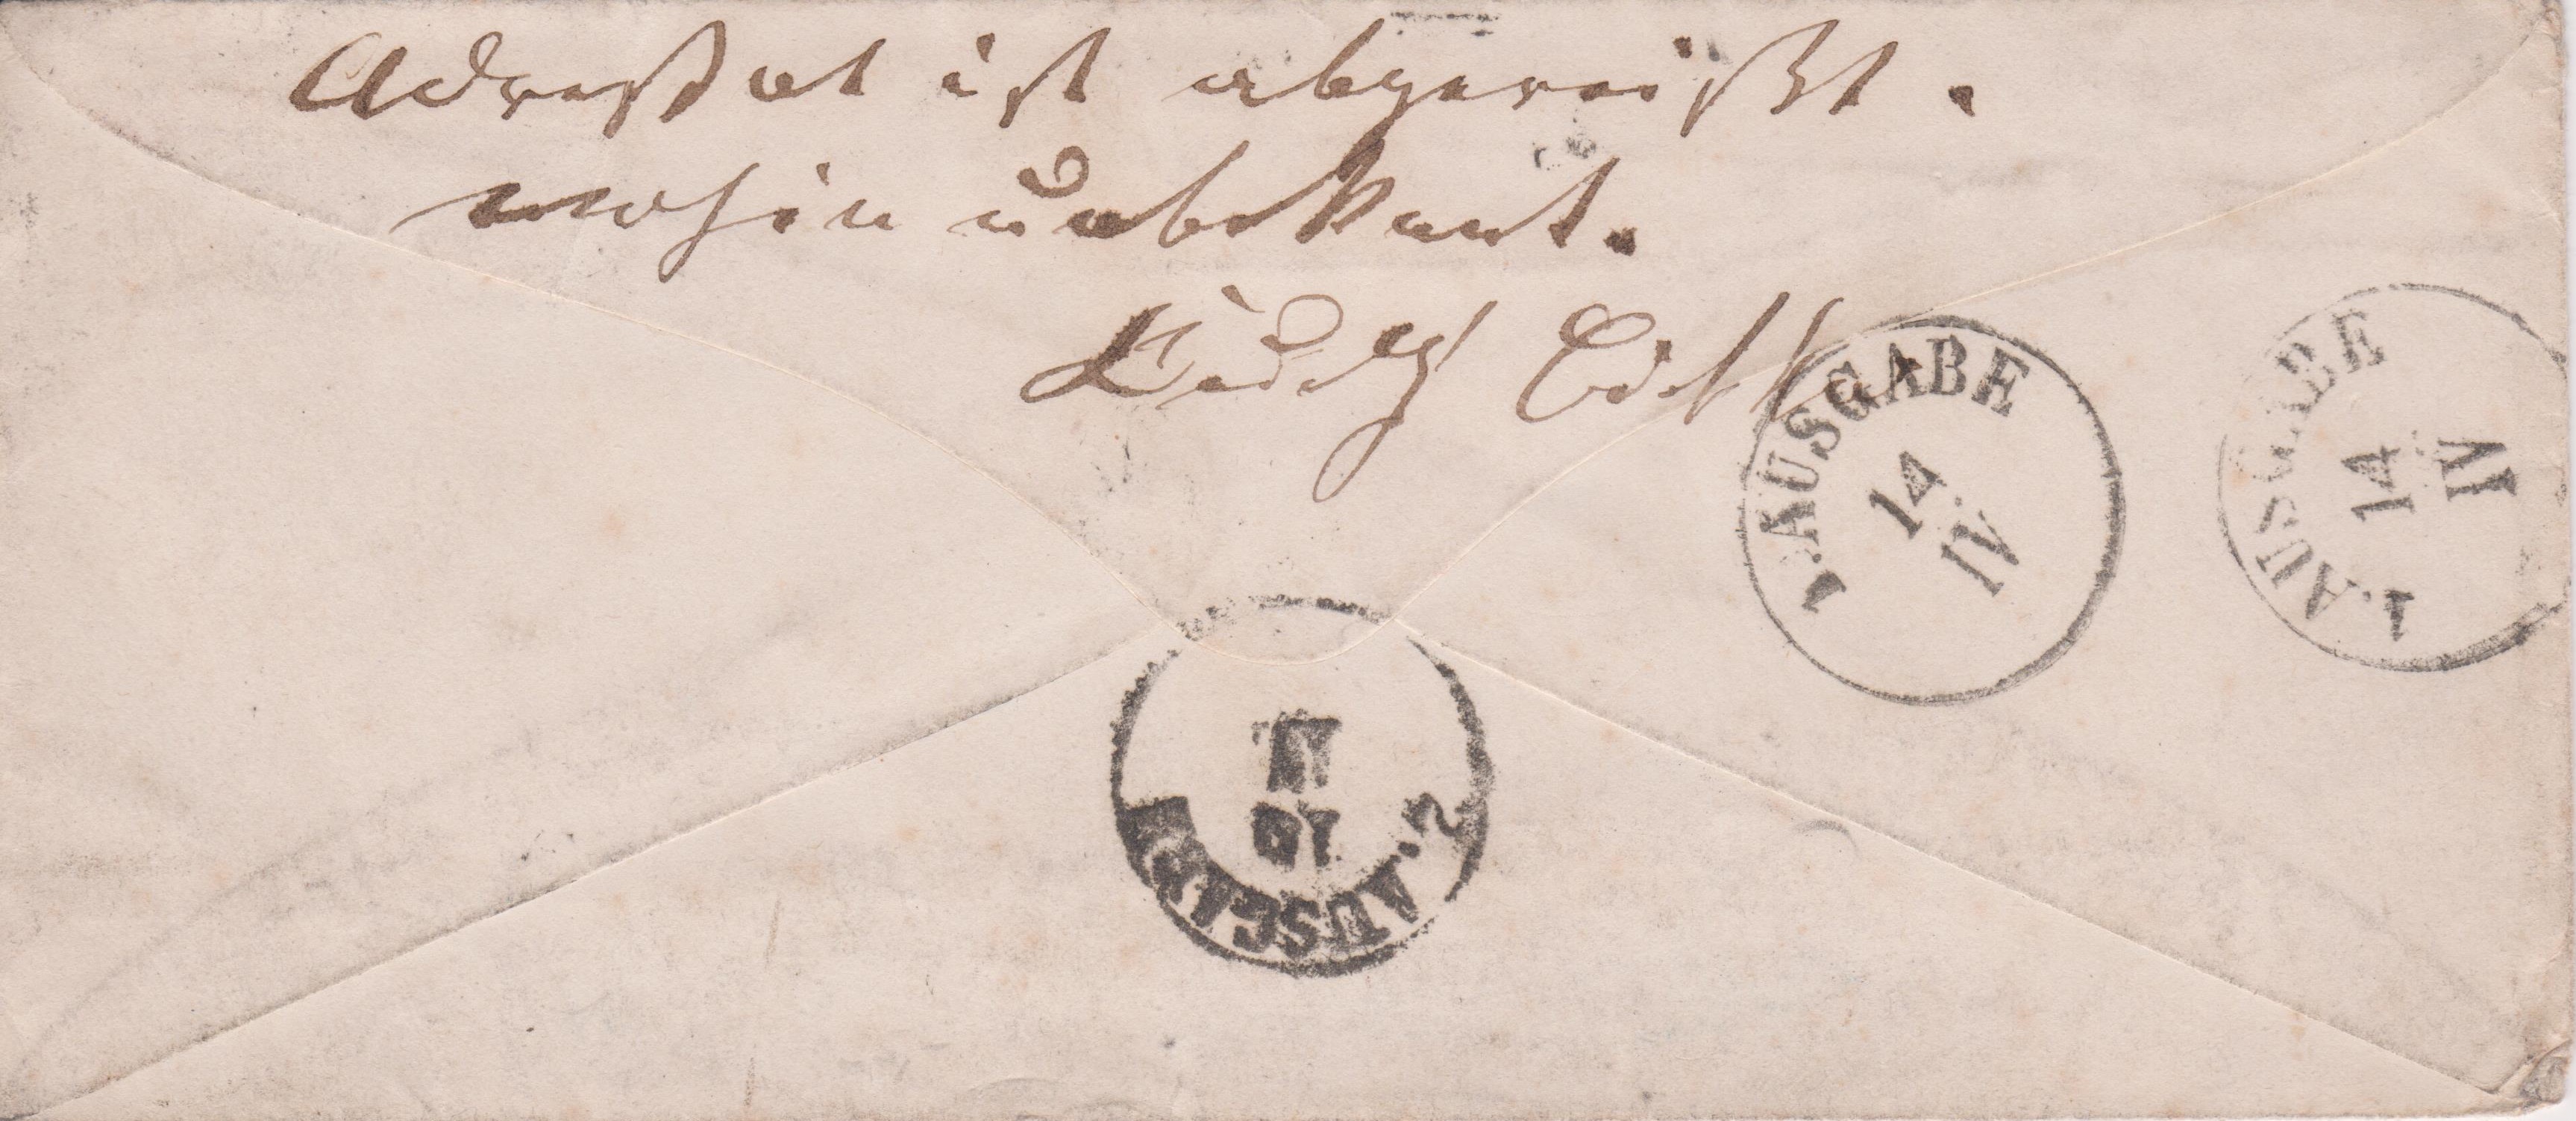 Adressat ist abgereißt.
wohin unbekant.
1. AUSGABE
14
IV
1. AUSGABE
14
IV
2. AUSGABE
10
IV